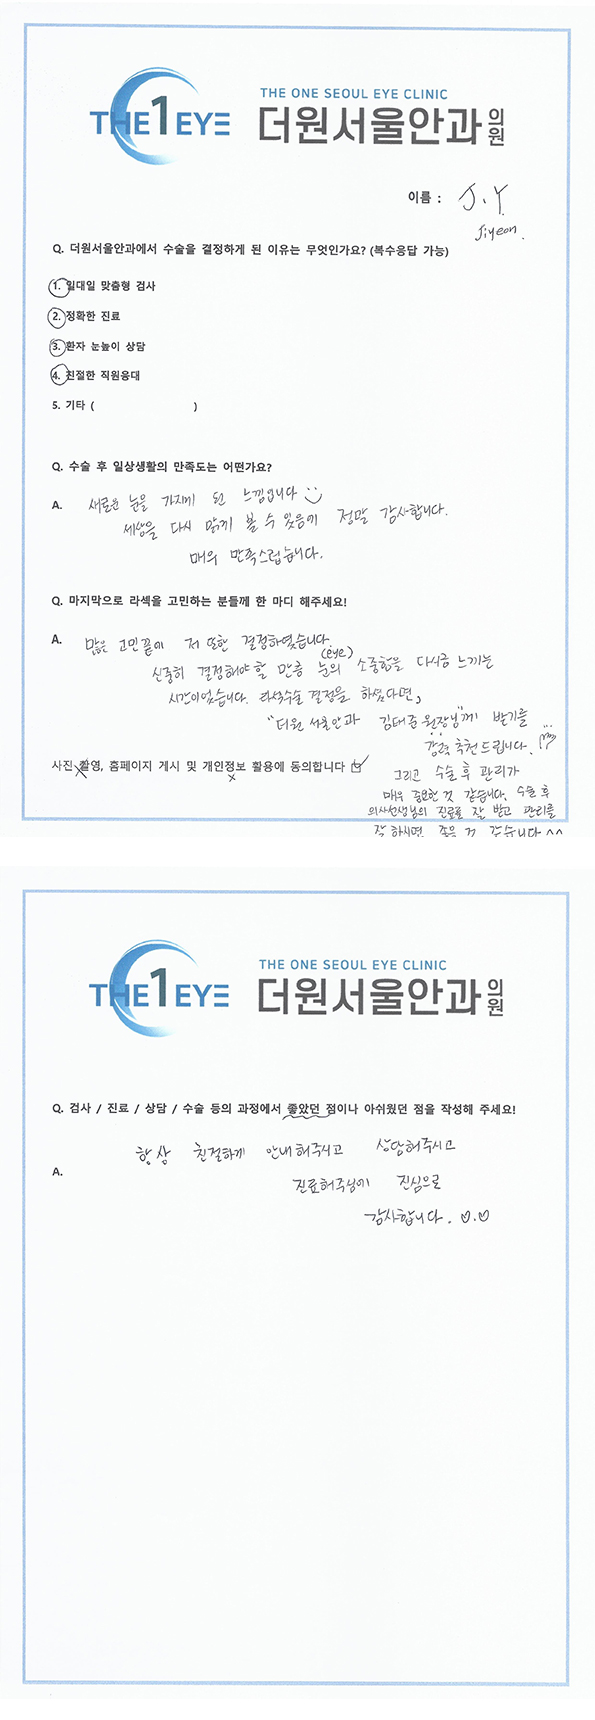 THE 1 EYE
THE ONE SEOUL EYE CLINIC
더원서울안과의원
이름 : J.Y
Jiyeon.
Q. 더원서울안과에서 수술을 결정하게 된 이유는 무엇인가요? (복수응답 가능)
1. 일대일 맞춤형 검사
2. 정확한 진료
3. 환자 눈높이 상담
4. 친절한 직원응대
5. 기타 ( )
Q. 수술 후 일상생활의 만족도는 어떤가요?
A. 새로운 눈을 가지게 된 느낌입니다
세상을 다시 맑게 볼 수 있음에 정말 감사합니다.
매우 만족스럽습니다.
Q. 마지막으로 라섹을 고민하는 분들께 한 마디 해주세요!
A. 많은 고민끝에 저 또한 결정하였습니다.
(eye)
신중히 결정해야 할 만큼 눈의 소중함을 다시금 느끼는
시간이었습니다. 라섹수술 결정을 하셨다면,
"더원 서울안과 김태준 원장님"께 받기를
강력 추천드립니다.
사진 촬영, 홈페이지 게시 및 개인정보 활용에 동의합니다
그리고 수술 후 관리가
매우 중요한 것 같습니다. 수술 후
의사선생님의 진료를 잘 받고 관리를
잘 하시면 좋을 것 같습니다 ^^
THE 1 EYE
THE ONE SEOUL EYE CLINIC
더원서울안과의원
Q. 검사 / 진료 / 상담 / 수술 등의 과정에서 좋았던 점이나 아쉬웠던 점을 작성해 주세요!
A. 항상 친절하게 안내해주시고 상담해주시고
진료해주심에 진심으로
감사합니다. ♡.♡